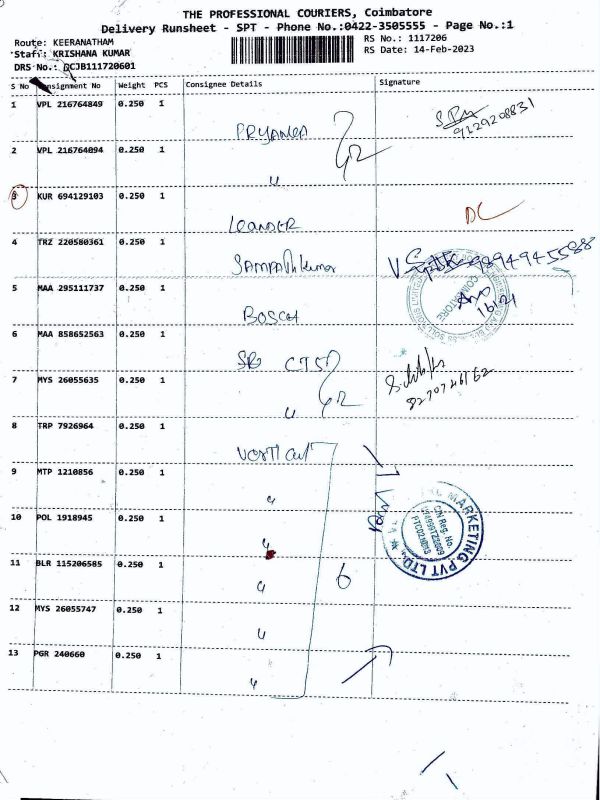 THE PROFESSIONAL COURIERS, Coimbatore
Delivery Runsheet - SPT - Phone No.:0422-3505555 - Page No.:1
Route: KEERANATHAM
RS No.: 1117206
Staff: KRISHANA KUMAR
RS Date: 14-Feb-2023
DRS No.: DCJB111720601
S No Consignment No Weight PCS Consignee Details Signature
1 VPL 216764849 0.250 1 PRIYANKA
9129208831
2 VPL 216764094 0.250 1 "
3 KUR 694129103 0.250 1 LEANDER DC
4 TRZ 220580361 0.250 1 SAMPATH Kumar 9894945588
COIMBATORE
5 MAA 295111737 0.250 1 BOSCH
6 MAA 858652563 0.250 1 SB CTS
7 MYS 26055635 0.250 1 "
8270746162
8 TRP 7926964 0.250 1
9 MTP 1210856 0.250 1 "
10 POL 1918945 0.250 1 "
MARKETING PVT LTD
CIN Reg. No.
11 BLR 115206585 0.250 1 "
6
12 MYS 26055747 0.250 1 "
13 PGR 240660 0.250 1 "